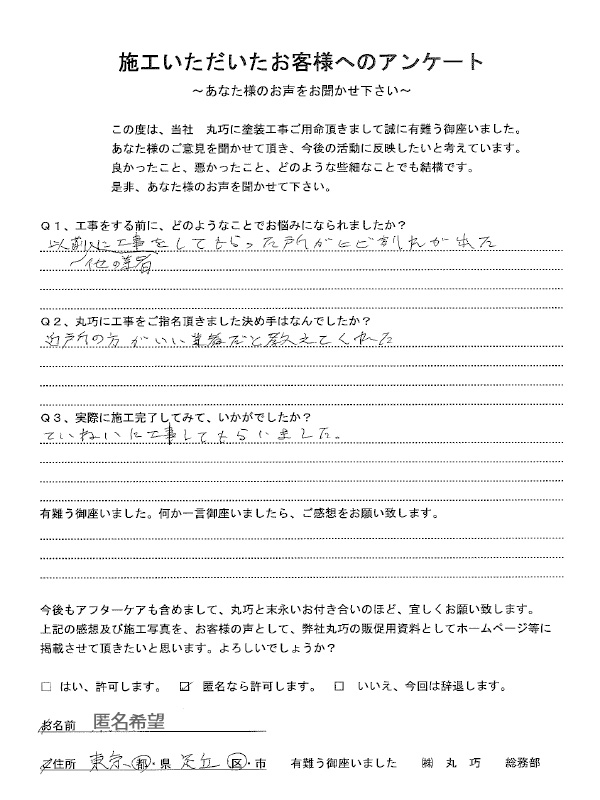 施工いただいたお客様へのアンケート
～あなた様のお声をお聞かせ下さい～
この度は、当社　丸巧に塗装工事ご用命頂きまして誠に有難う御座いました。
あなた様のご意見を聞かせて頂き、今後の活動に反映したいと考えています。
良かったこと、悪かったこと、どのような些細なことでも結構です。
是非、あなた様のお声を聞かせて下さい。
Ｑ１、工事をする前に、どのようなことでお悩みになられましたか？
以前に工事をしてもらった所がヒビ割れが出た
他の業者
Ｑ２、丸巧に工事をご指名頂きました決め手はなんでしたか？
近所の方がいい業者だと教えてくれた
Ｑ３、実際に施工完了してみて、いかがでしたか？
ていねいに工事してもらいました。
有難う御座いました。何か一言御座いましたら、ご感想をお願い致します。
今後もアフターケアも含めまして、丸巧と末永いお付き合いのほど、宜しくお願い致します。
上記の感想及び施工写真を、お客様の声として、弊社丸巧の販促用資料としてホームページ等に
掲載させて頂きたいと思います。よろしいでしょうか？
□ はい、許可します。 ☑ 匿名なら許可します。 □ いいえ、今回は辞退します。
お名前 匿名希望
ご住所 東京 都・県 足立 区・市 有難う御座いました ㈱ 丸 巧 総務部